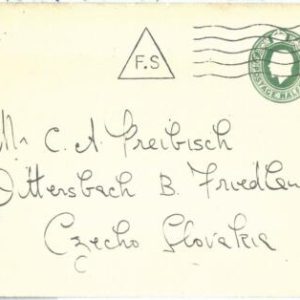 F.S
POSTAGE HALF
Mr C. A. Preibisch
Ottersbach B. Friedlan
Czecho Slovakia